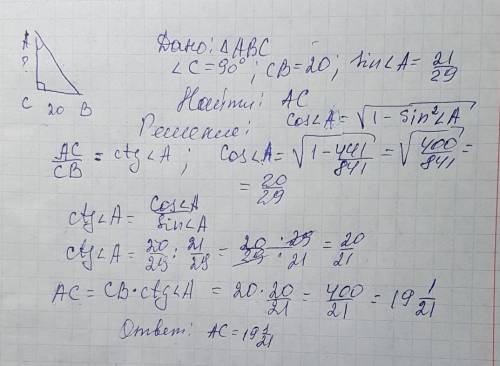 A
?
C 20 B
Дано: △ABC
∠C=90°; CB=20; sin∠A= 21/29
Найти: AC
Решение: cos∠A=√(1-sin²∠A)
AC/CB = ctg∠A; cos∠A=√(1-441/841)=√(400/841)=
= 20/29
ctg∠A= cos∠A/sin∠A
ctg∠A= 20/29 : 21/29 = 20·29/29·21 = 20/21
AC= CB·ctg∠A = 20·20/21 = 400/21 = 19 1/21
Ответ: AC=19 1/21